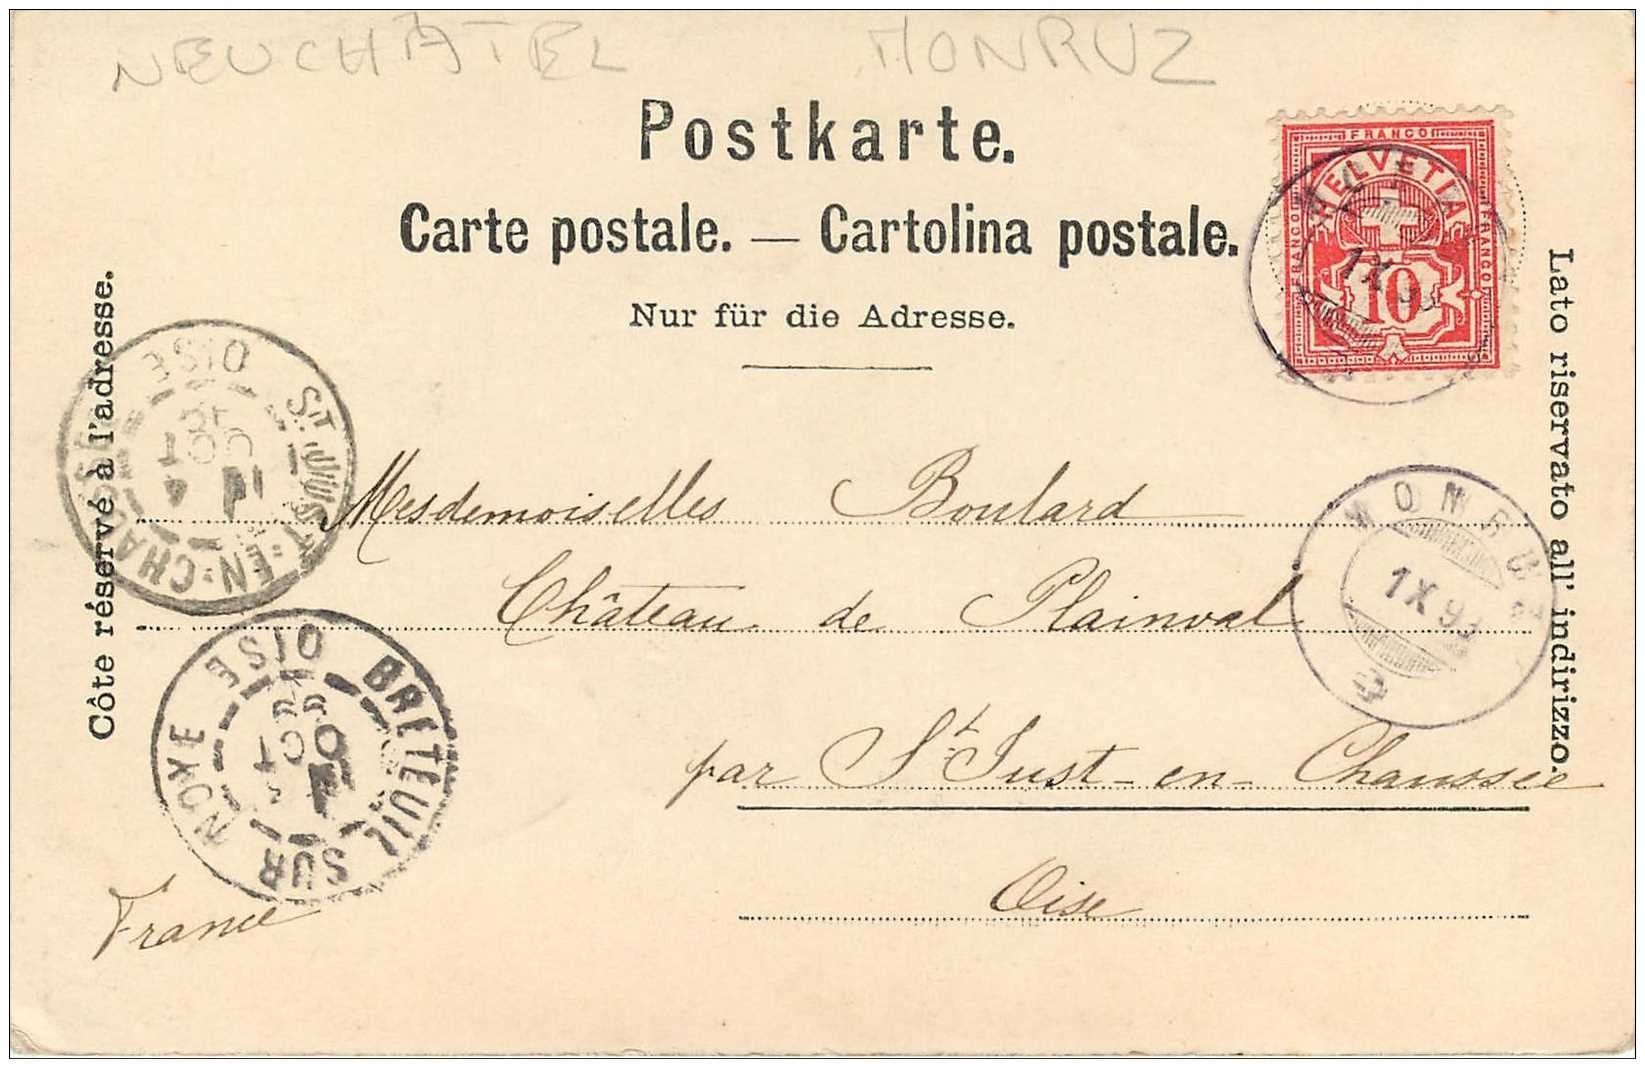 NEUCHÂTEL MONRUZ
Postkarte.
Carte postale. — Cartolina postale.
Nur für die Adresse.
Côte réservé à l'adresse.
Lato riservato all' indirizzo.
FRANCO
HELVETIA
FRANCO
FRANCO
10
1 X 9
MONRUZ
1 X 9
ST JUST-EN-CHAUSSÉE
OISE
OCT
BRETEUIL SUR NOYE
OISE
OCT
Mesdemoiselles Boulard
Château de Plainval
par St Just-en-Chaussée
Oise
France